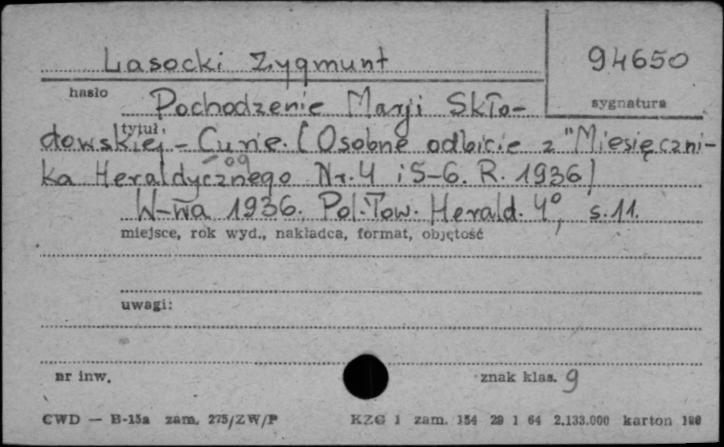 Lasocki Zygmunt
94650
hasło
sygnatura
Pochodzenie Marji Skło-
tytuł
dowskiej - Curie. (Osobne odbicie z "Miesięczni-
ka Heraldycznego Nr. 4 i 5-6. R. 1936)
W-wa 1936. Pol. Tow. Herald. 4°, s. 11.
miejsce, rok wyd., nakładca, format, objętość
uwagi:
nr inw.
znak klas. 9
CWD — B-15a zam. 275/ZW/P
KZG 1 zam. 154 29 1 64 2.133.000 karton